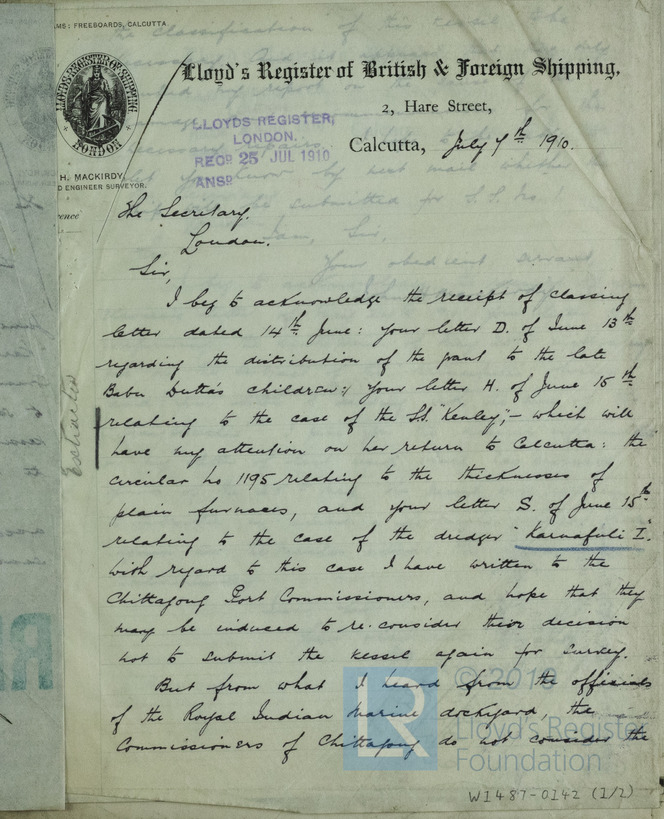 MS: FREEBOARDS, CALCUTTA
LLOYD'S REGISTER OF SHIPPING
LONDON
Lloyd's Register of British & Foreign Shipping,
2, Hare Street,
Calcutta, July 7th 1910.
LLOYDS REGISTER,
LONDON.
RECD 25 JUL 1910
ANSD
H. MACKIRDY
D ENGINEER SURVEYOR.
The Secretary.
London.
Sir,
I beg to acknowledge the receipt of classing
letter dated 14th June: your letter D. of June 13th
regarding the distribution of the grant to the late
Babu Dutta's children: your letter H. of June 15th
relating to the case of the S.S. "Kenley", - which will
have my attention on her return to Calcutta: the
circular No 1195 relating to the thicknesses of
plain furnaces, and your letter S. of June 15th
relating to the case of the dredger "Karnafuli I".
With regard to this case I have written to the
Chittagong Port Commissioners, and hope that they
may be induced to re-consider their decision
not to submit the vessel again for survey.
But from what I heard from the officials
of the Royal Indian Marine dockyard the
Commissioners of Chittagong do not consider the
Extracted
© 2019
LR
Lloyd's Register
Foundation
W1487-0142 (1/2)